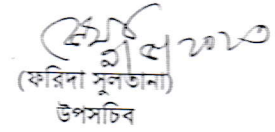 (ফরিদা সুলতানা)
উপসচিব